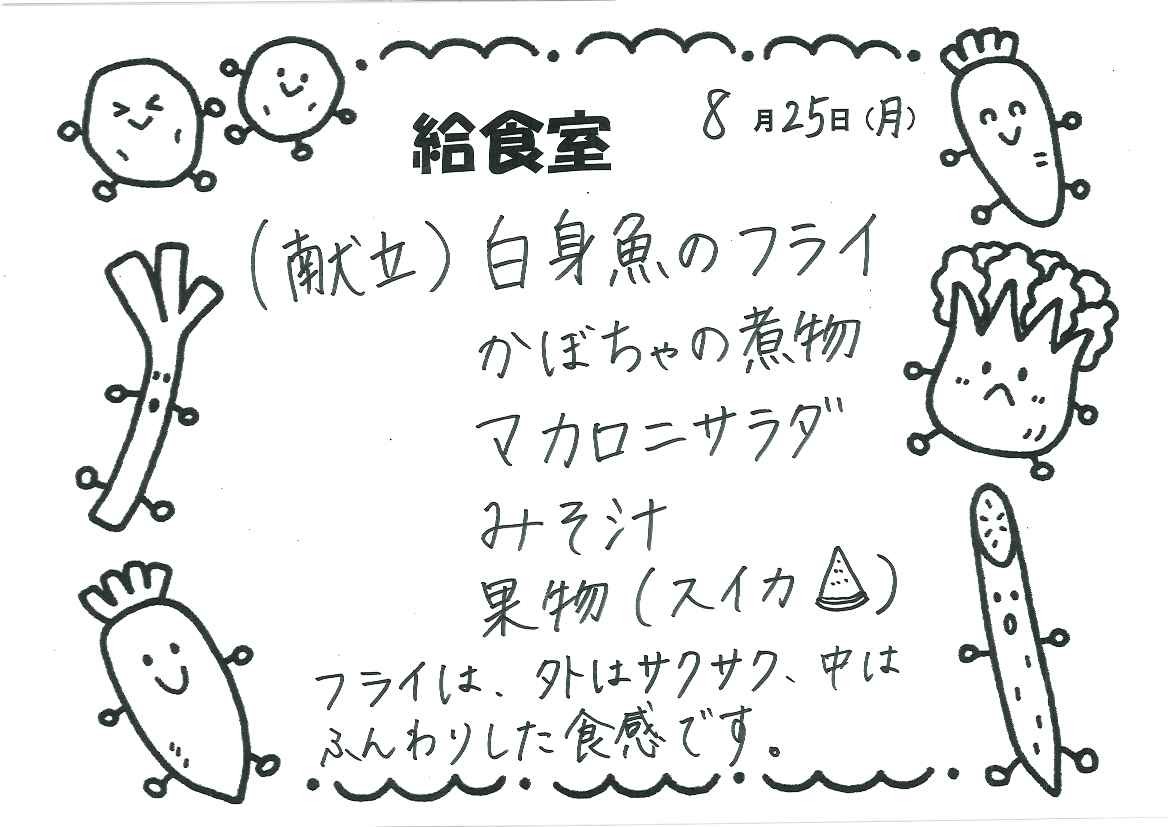 給食室
8月25日(月)
(献立)白身魚のフライ
かぼちゃの煮物
マカロニサラダ
みそ汁
果物(スイカ)
フライは、外はサクサク、中は
ふんわりした食感です。